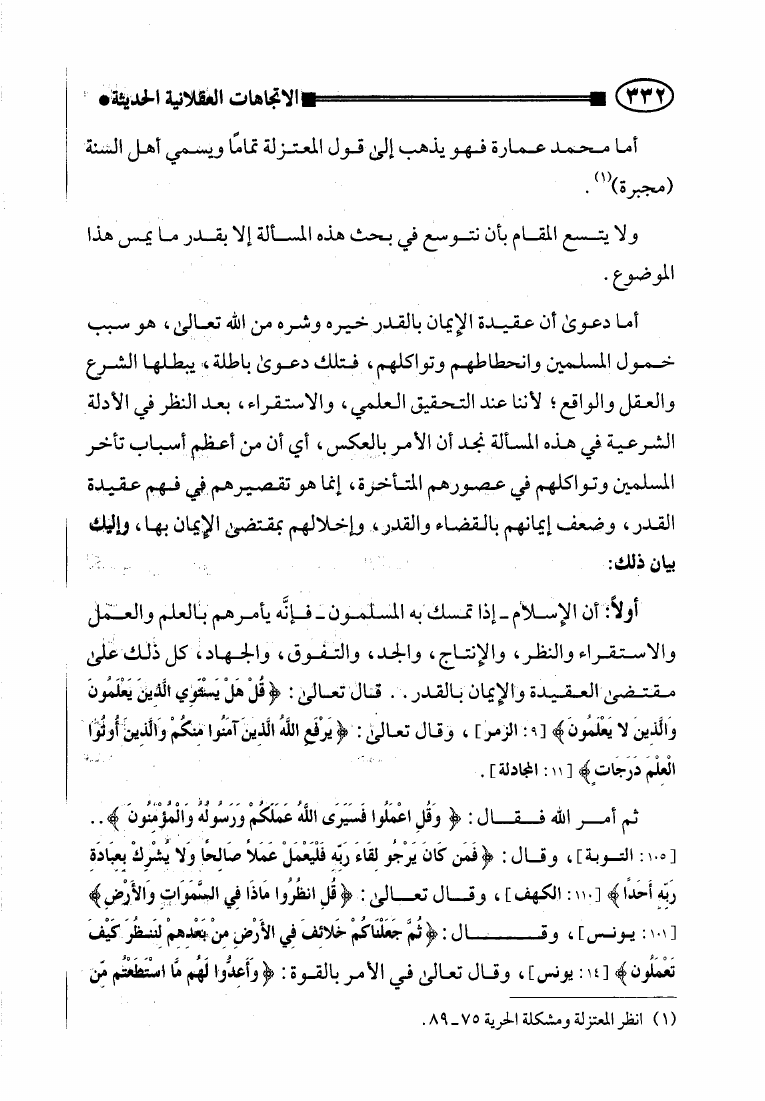 ٣٣٢ الاتجاهات العقلانية الحديثة
أما محمد عمارة فهو يذهب إلى قول المعتزلة تمامًا ويسمي أهل السنة
(مجبرة)(١).
ولا يتسع المقام بأن نتوسع في بحث هذه المسألة إلا بقدر ما يمس هذا
الموضوع.
أما دعوىٰ أن عقيدة الإيمان بالقدر خيره وشره من الله تعالىٰ، هو سبب
خمول المسلمين وانحطاطهم وتواكلهم، فتلك دعوىٰ باطلة، يبطلها الشرع
والعقل والواقع؛ لأننا عند التحقيق العلمي، والاستقراء، بعد النظر في الأدلة
الشرعية في هذه المسألة نجد أن الأمر بالعكس، أي أن من أعظم أسباب تأخر
المسلمين وتواكلهم في عصورهم المتأخرة، إنما هو تقصيرهم في فهم عقيدة
القدر، وضعف إيمانهم بالقضاء والقدر، وإخلالهم بمقتضىٰ الإيمان بها، وإليك
بيان ذلك:
أولاً: أن الإسلام - إذا تمسك به المسلمون - فإنَّه يأمرهم بالعلم والعمل
والاستقراء والنظر، والإنتاج، والجد، والتفوق، والجهاد، كل ذلك علىٰ
مقتضىٰ العقيدة والإيمان بالقدر.. قال تعالىٰ: ﴿قُلْ هَلْ يَسْتَوِي الَّذِينَ يَعْلَمُونَ
وَالَّذِينَ لا يَعْلَمُونَ﴾ [٩: الزمر]، وقال تعالىٰ: ﴿يَرْفَعِ اللَّهُ الَّذِينَ آمَنُوا مِنكُمْ وَالَّذِينَ أُوتُوا
الْعِلْمَ دَرَجَاتٍ﴾ [١١: المجادلة].
ثم أمر الله فقال: ﴿وَقُلِ اعْمَلُوا فَسَيَرَى اللَّهُ عَمَلَكُمْ وَرَسُولُهُ وَالْمُؤْمِنُونَ﴾..
[١٠٥: التوبة]، وقال: ﴿فَمَن كَانَ يَرْجُو لِقَاءَ رَبِّهِ فَلْيَعْمَلْ عَمَلاً صَالِحًا وَلا يُشْرِكْ بِعِبَادَةِ
رَبِّهِ أَحَدًا﴾ [١١٠: الكهف]، وقال تعالىٰ: ﴿قُلِ انظُرُوا مَاذَا فِي السَّمَوَاتِ وَالأَرْضِ﴾
[١٠١: يونس]، وقال: ﴿ثُمَّ جَعَلْنَاكُمْ خَلائِفَ فِي الأَرْضِ مِنْ بَعْدِهِمْ لِنَنظُرَ كَيْفَ
تَعْمَلُونَ﴾ [١٤: يونس]، وقال تعالىٰ في الأمر بالقوة: ﴿وَأَعِدُّوا لَهُم مَّا اسْتَطَعْتُم مِّن
(١) انظر المعتزلة ومشكلة الحرية ٧٥ - ٨٩.